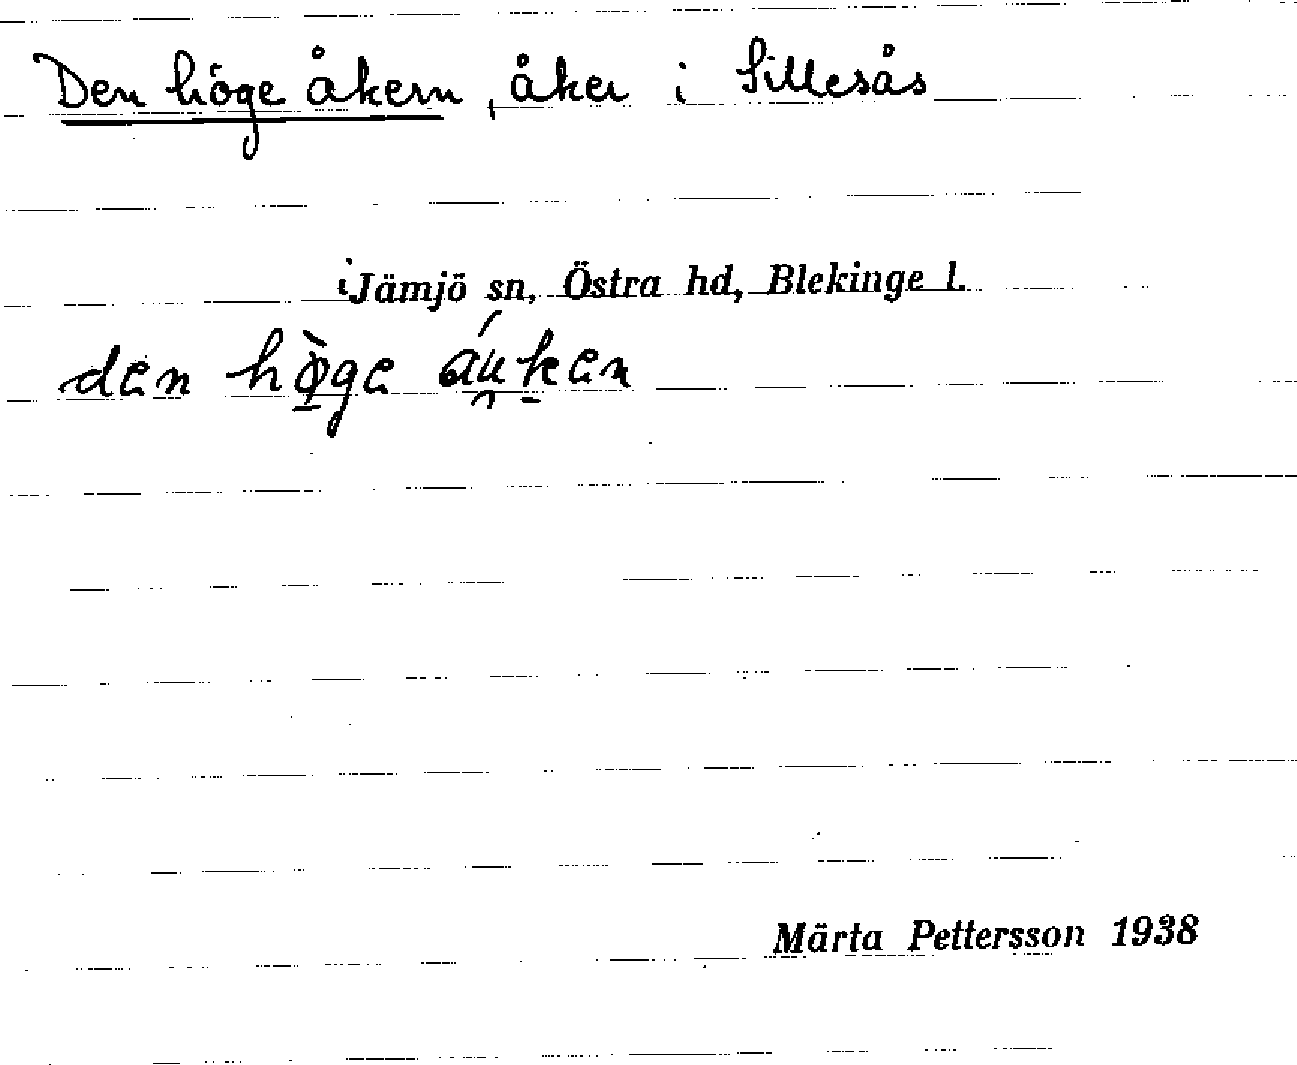 Den höge åkern, åker i Sillesås
i Jämjö sn, Östra hd, Blekinge l.
den hø̀ge áu̯ken
Märta Pettersson 1938